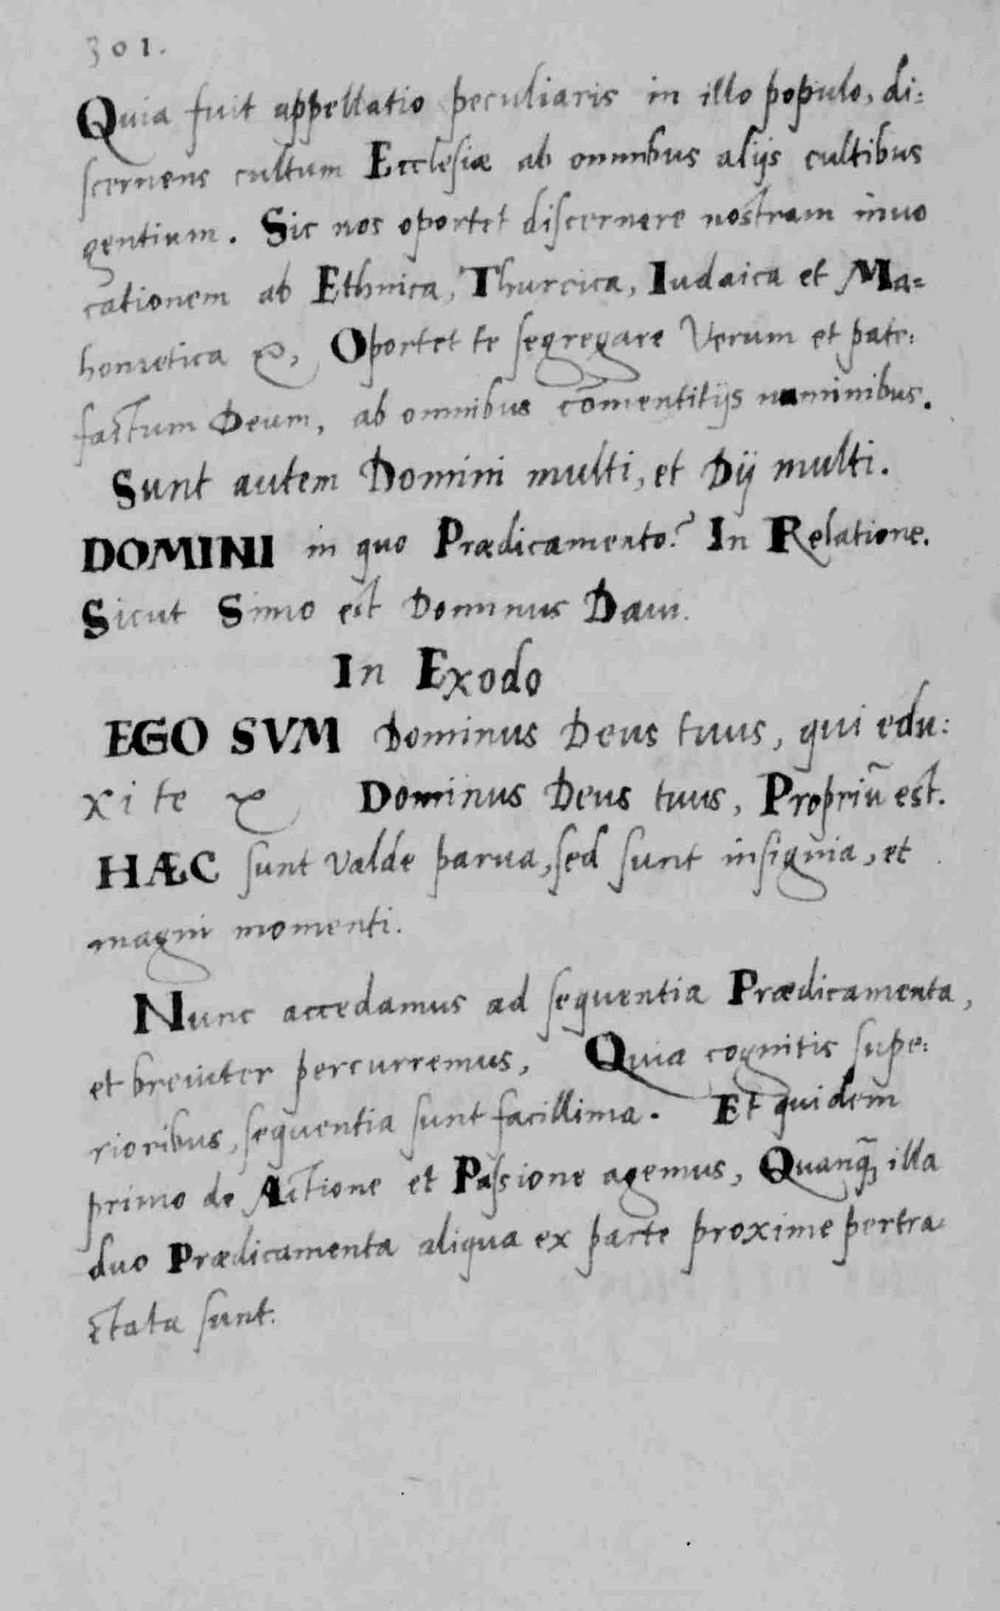 301.
Quia fuit appellatio peculiaris in illo populo, di:
scernens cultum Ecclesiæ ab omnibus alijs cultibus
gentium. Sic nos oportet discernere nostram inuo
cationem ab Ethnica, Thurcica, Iudaica et Ma=
hometica &c, Oportet te segregare Verum et pate:
factum Deum, ab omnibus com̄entitijs numinibus.
Sunt autem Domini multi, et Dij multi.
DOMINI in quo Prædicamento? In Relatione.
Sicut Simo est Dominus Daui.
In Exodo
EGO SVM Dominus Deus tuus, qui edu:
xi te &c Dominus Deus tuus, Propriū est.
HÆC sunt Valde parua, sed sunt insignia, et
magni momenti.
Nunc accedamus ad sequentia Prædicamenta,
et breuiter percurremus, Quia cognitis supe:
rioribus, sequentia sunt facillima. Et quidem
primo de Actione et Passione agemus, Quanq̃ illa
duo Prædicamenta aliqua ex parte proxime pertra
ctata sunt.